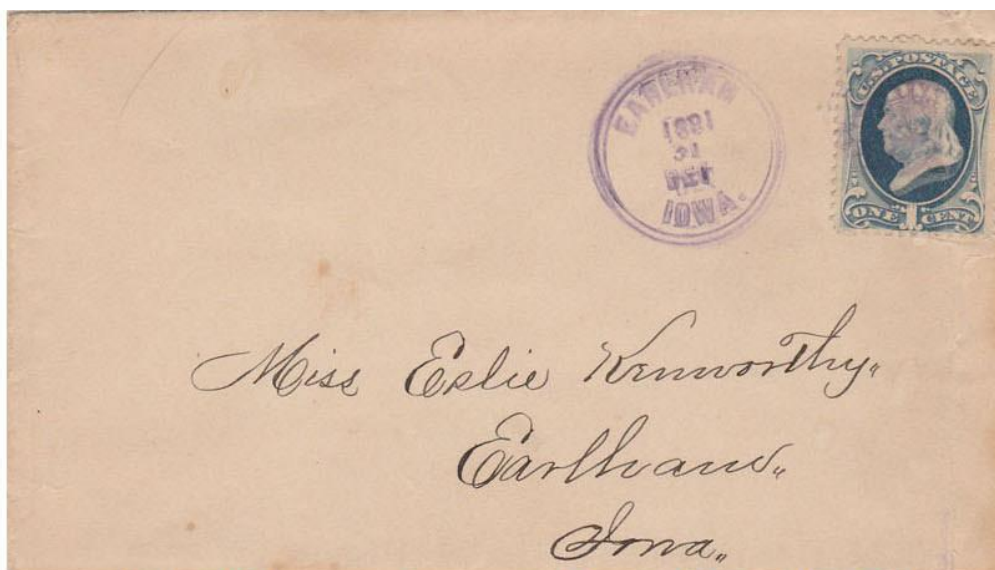 EARLHAM
1881
IOWA.
U.S. POSTAGE
ONE 1 CENT
Miss Eslie Kenworthy.
Earlham.
Iowa.